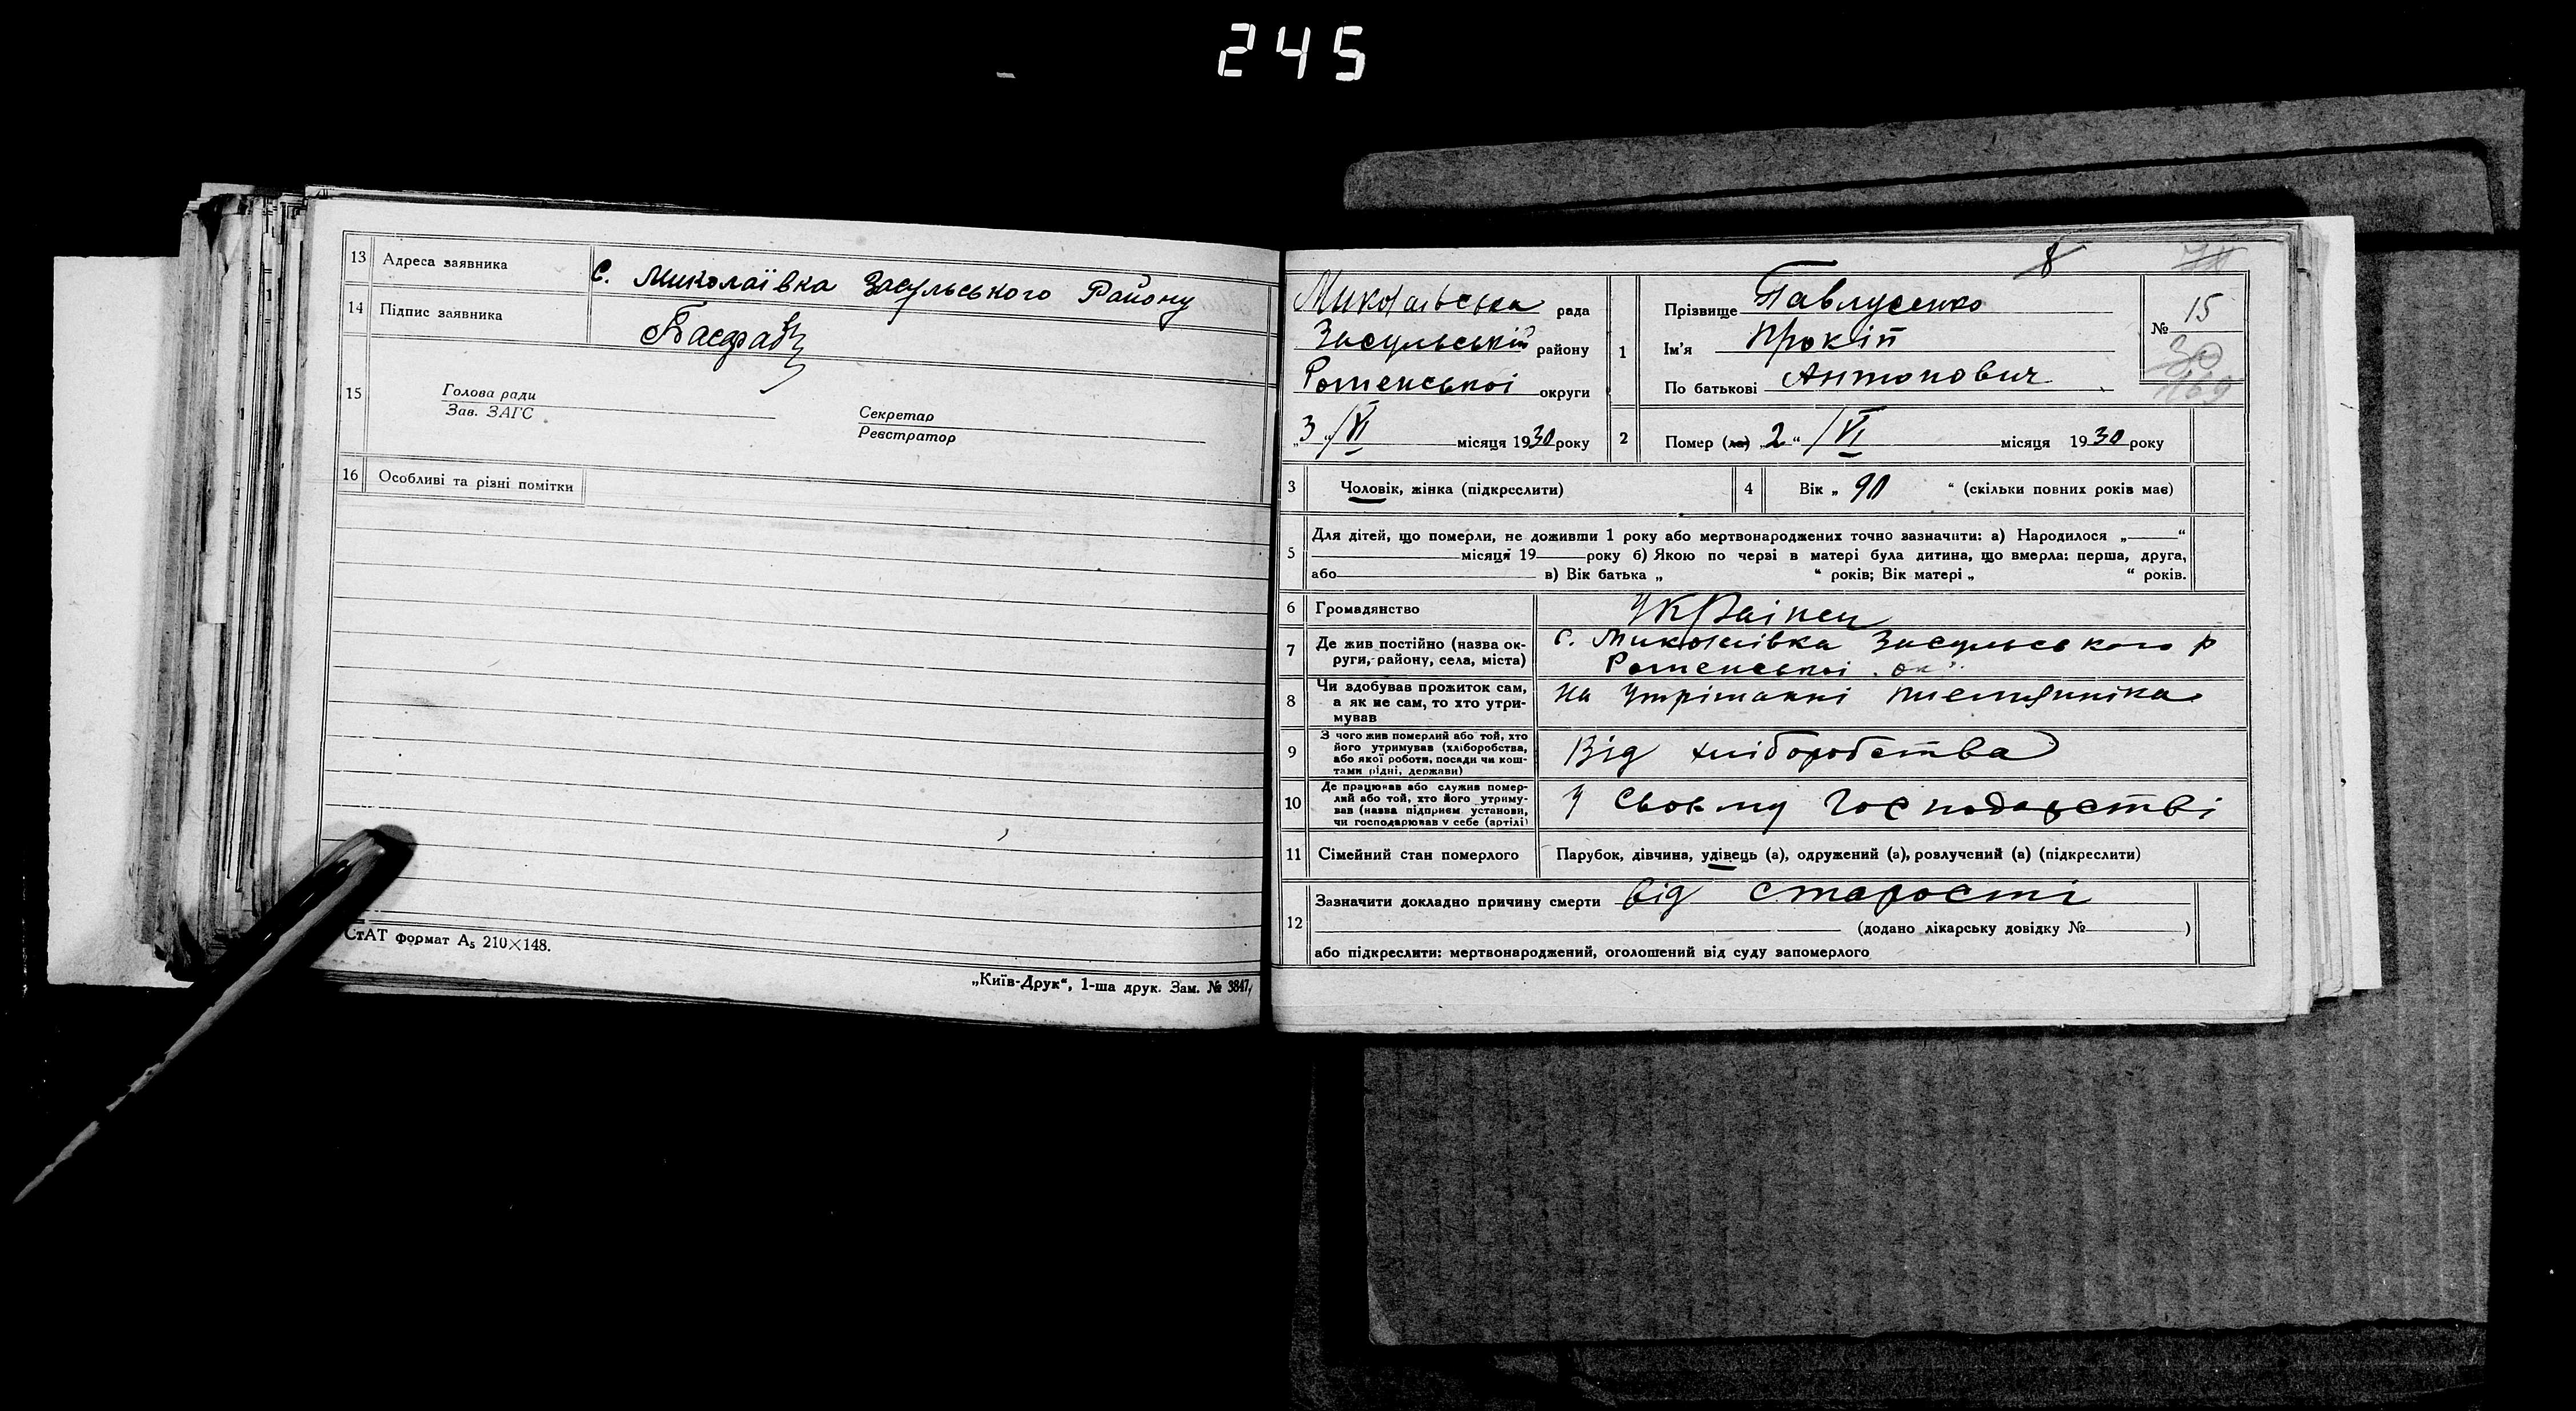 245
13 Адреса заявника с. Миколаївка Засульського Району
14 Підпис заявника
15 Голова ради
Зав. ЗАГС
Секретар
Реєстратор
16 Особливі та різні помітки
СтАТ формат А5 210×148.
„Київ-Друк“, 1-ша друк. Зам. № 3847
8
Миколаївська рада
Засульський району
Роменської округи
„3“ VI місяця 1930 року
1 Прізвище Павлусенко
Ім'я Прокіп
По батькові Антонович
№ 15
30
169
2 Помер (ла) „2“ VI місяця 1930 року
3 Чоловік, жінка (підкреслити)
4 Вік „90“ (скільки повних років має)
5 Для дітей, що померли, не доживши 1 року або мертвонароджених точно зазначити: а) Народилося „ “
місяця 19 року б) Якою по черзі в матері була дитина, що вмерла: перша, друга,
або в) Вік батька „ “ років; Вік матері „ “ років.
6 Громадянство Українец
7 Де жив постійно (назва ок-
руги, району, села, міста)
с. Миколаївка Засульського р
Роменської ок
8 Чи здобував прожиток сам,
а як не сам, то хто утри-
мував
на утріманні племяніка
9 З чого жив померлий або той, хто
його утримував (хліборобства,
або якої роботи, посади чи кош-
тами рідні, держави)
Від хліборобства
10 Де працював або служив помер-
лий або той, хто його утриму-
вав (назва підприєм. установи,
чи господарював у себе (артілі)
У Своему Господарстві
11 Сімейний стан померлого Парубок, дівчина, удівець (а), одружений (а), розлучений (а) (підкреслити)
12 Зазначити докладно причину смерти від старости
(додано лікарську довідку № )
або підкреслити: мертвонароджений, оголошений від суду запомерлого